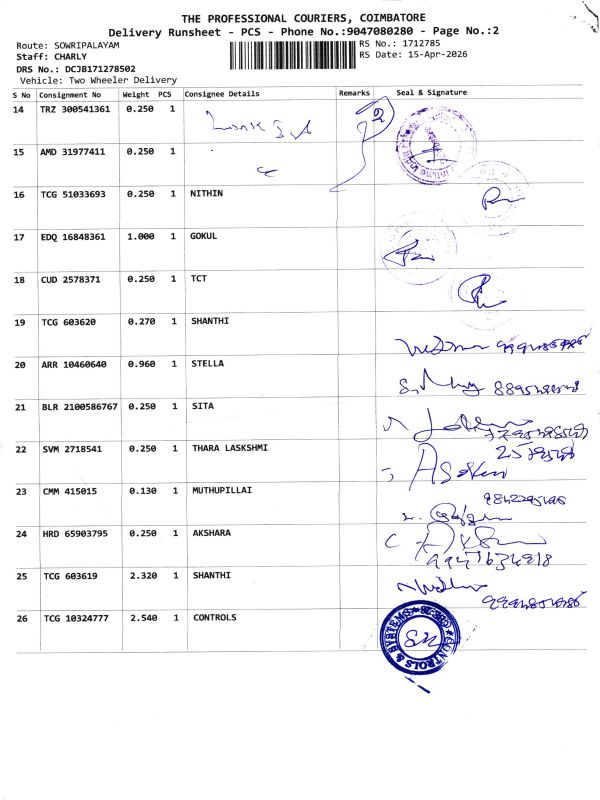 THE PROFESSIONAL COURIERS, COIMBATORE
Delivery Runsheet - PCS - Phone No.:9047080280 - Page No.:2
Route: SOWRIPALAYAM
RS No.: 1712785
Staff: CHARLY
RS Date: 15-Apr-2026
DRS No.: DCJB171278502
Vehicle: Two Wheeler Delivery
S No Consignment No Weight PCS Consignee Details Remarks Seal & Signature
14 TRZ 300541361 0.250 1 2
15 AMD 31977411 0.250 1
16 TCG 51033693 0.250 1 NITHIN
17 EDQ 16848361 1.000 1 GOKUL
18 CUD 2578371 0.250 1 TCT
19 TCG 603620 0.270 1 SHANTHI
20 ARR 10460640 0.960 1 STELLA
21 BLR 2100586767 0.250 1 SITA
22 SVM 2718541 0.250 1 THARA LASKSHMI
23 CMM 415015 0.130 1 MUTHUPILLAI
24 HRD 65903795 0.250 1 AKSHARA
25 TCG 603619 2.320 1 SHANTHI
26 TCG 10324777 2.540 1 CONTROLS
CONTROLS & SYSTEMS